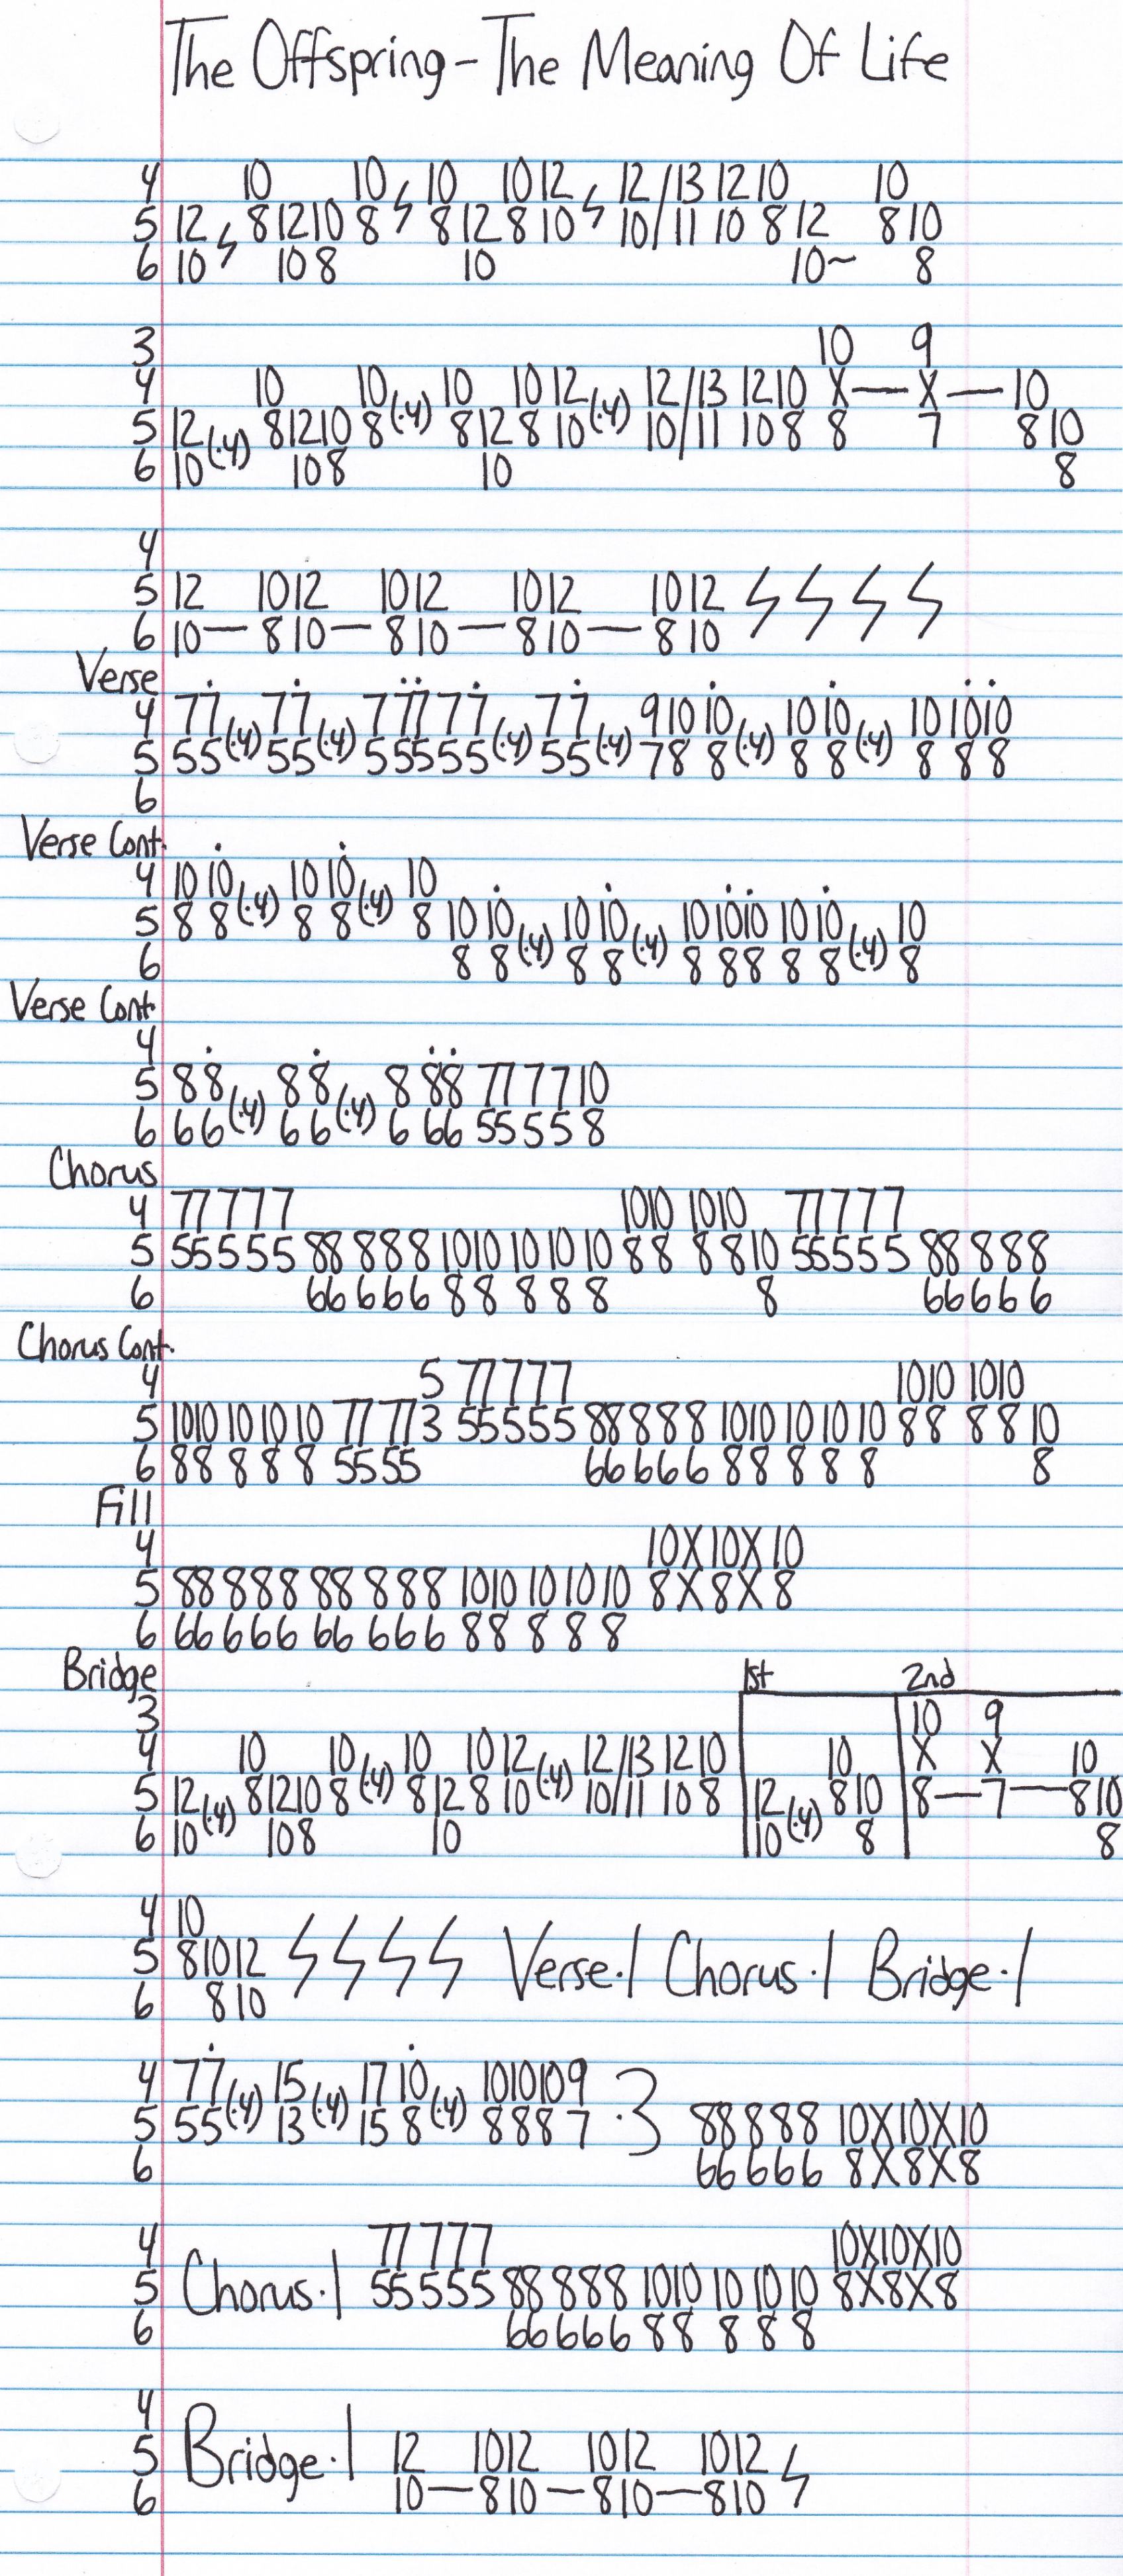 The Offspring - The Meaning Of Life
4 10 10 10 10 12 12/13 12 10 10
5 12 8 12 10 8 8 12 8 10 10/11 10 8 12 8 10
6 10 10 8 10 10~ 8
3 10 9
4 10 10 (.4) 10 10 12 (.4) 12/13 12 10 X — X — 10
5 12 (.4) 8 12 10 8 8 12 8 10 10/11 10 8 8 7 8 10
6 10 10 8 10 8
4
5 12 10 12 10 12 10 12 10 12
6 10 — 8 10 — 8 10 — 8 10 — 8 10
Verse
4 7 7 (.4) 7 7 (.4) 7 7 7 7 7 (.4) 7 7 (.4) 9 10 10 (.4) 10 10 (.4) 10 10 10
5 5 5 5 5 5 5 5 5 5 5 5 7 8 8 8 8 8 8 8
6
Verse Cont.
4 10 10 (.4) 10 10 (.4) 10
5 8 8 8 8 8 10 10 (.4) 10 10 (.4) 10 10 10 10 10 (.4) 10
6 8 8 8 8 8 8 8 8 8 8
Verse Cont.
4
5 8 8 (.4) 8 8 (.4) 8 8 8 7 7 7 7 10
6 6 6 6 6 6 6 6 5 5 5 5 8
Chorus
4 7 7 7 7 7 10 10 10 10 7 7 7 7 7
5 5 5 5 5 5 8 8 8 8 8 10 10 10 10 10 8 8 8 8 10 5 5 5 5 5 8 8 8 8 8
6 6 6 6 6 6 8 8 8 8 8 8 6 6 6 6 6
Chorus Cont.
4 5 7 7 7 7 7 10 10 10 10
5 10 10 10 10 10 7 7 7 7 3 5 5 5 5 5 8 8 8 8 8 10 10 10 10 10 8 8 8 8 10
6 8 8 8 8 8 5 5 5 5 6 6 6 6 6 8 8 8 8 8 8
Fill
4 10 X 10 X 10
5 8 8 8 8 8 8 8 8 8 8 10 10 10 10 10 8 X 8 X 8
6 6 6 6 6 6 6 6 6 6 6 8 8 8 8 8
Bridge 1st 2nd
3 10 9
4 10 10 (.4) 10 10 12 (.4) 12/13 12 10 10 X X 10
5 12 (.4) 8 12 10 8 8 12 8 10 10/11 10 8 12 (.4) 8 10 8 — 7 — 8 10
6 10 10 8 10 10 8 8
4 10
5 8 10 12 Verse.| Chorus.| Bridge.|
6 8 10
4 7 7 (.4) 15 (.4) 17 10 (.4) 10 10 10 9 .3
5 5 5 13 15 8 8 8 8 7 8 8 8 8 8 10 X 10 X 10
6 6 6 6 6 6 8 X 8 X 8
4 7 7 7 7 7 10 X 10 X 10
5 Chorus.| 5 5 5 5 5 8 8 8 8 8 10 10 10 10 10 8 X 8 X 8
6 6 6 6 6 6 8 8 8 8 8
4
5 Bridge.| 12 10 12 10 12 10 12
6 10 — 8 10 — 8 10 — 8 10